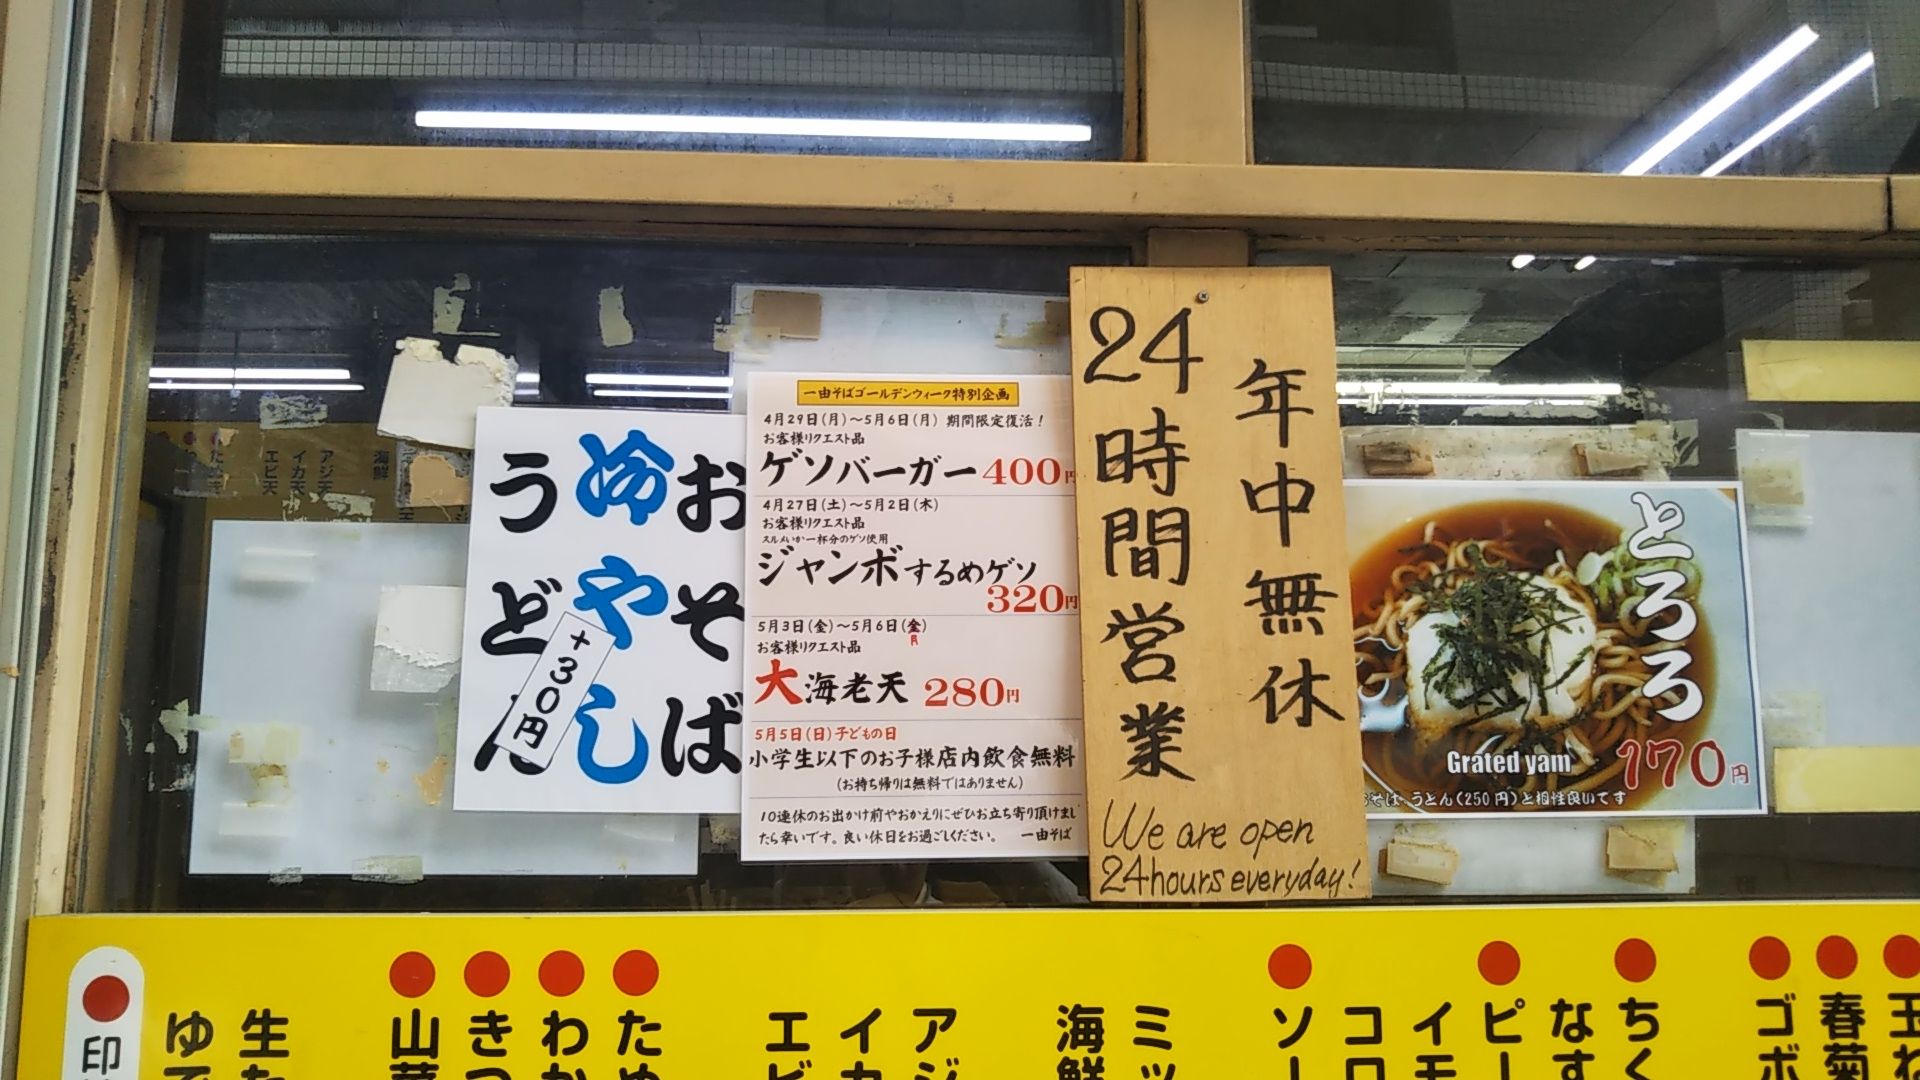 おそば
冷やし
うどん
+30円
一由そばゴールデンウィーク特別企画
4月29日(月)~5月6日(月) 期間限定復活!
お客様リクエスト品
ゲソバーガー 400円
4月27日(土)~5月2日(木)
お客様リクエスト品
スルメいか一杯分のゲソ使用
ジャンボするめゲソ
320円
5月3日(金)~5月6日(金)
月
お客様リクエスト品
大海老天 280円
5月5日(日)子どもの日
小学生以下のお子様店内飲食無料
(お持ち帰りは無料ではありません)
10連休のお出かけ前やおかえりにぜひお立ち寄り頂けまし
たら幸いです。良い休日をお過ごしください。 一由そば
年中無休
24時間営業
We are open
24hours everyday!
とろろ
Grated yam
170円
おそば、うどん(250円)と相性良いです
印
ゆで
生た
山菜
きつ
わか
ため
エビ
イカ
アジ
海鮮
ミッ
ソー
コロ
イモ
ピー
なす
ちく
ゴボ
春菊
玉ね